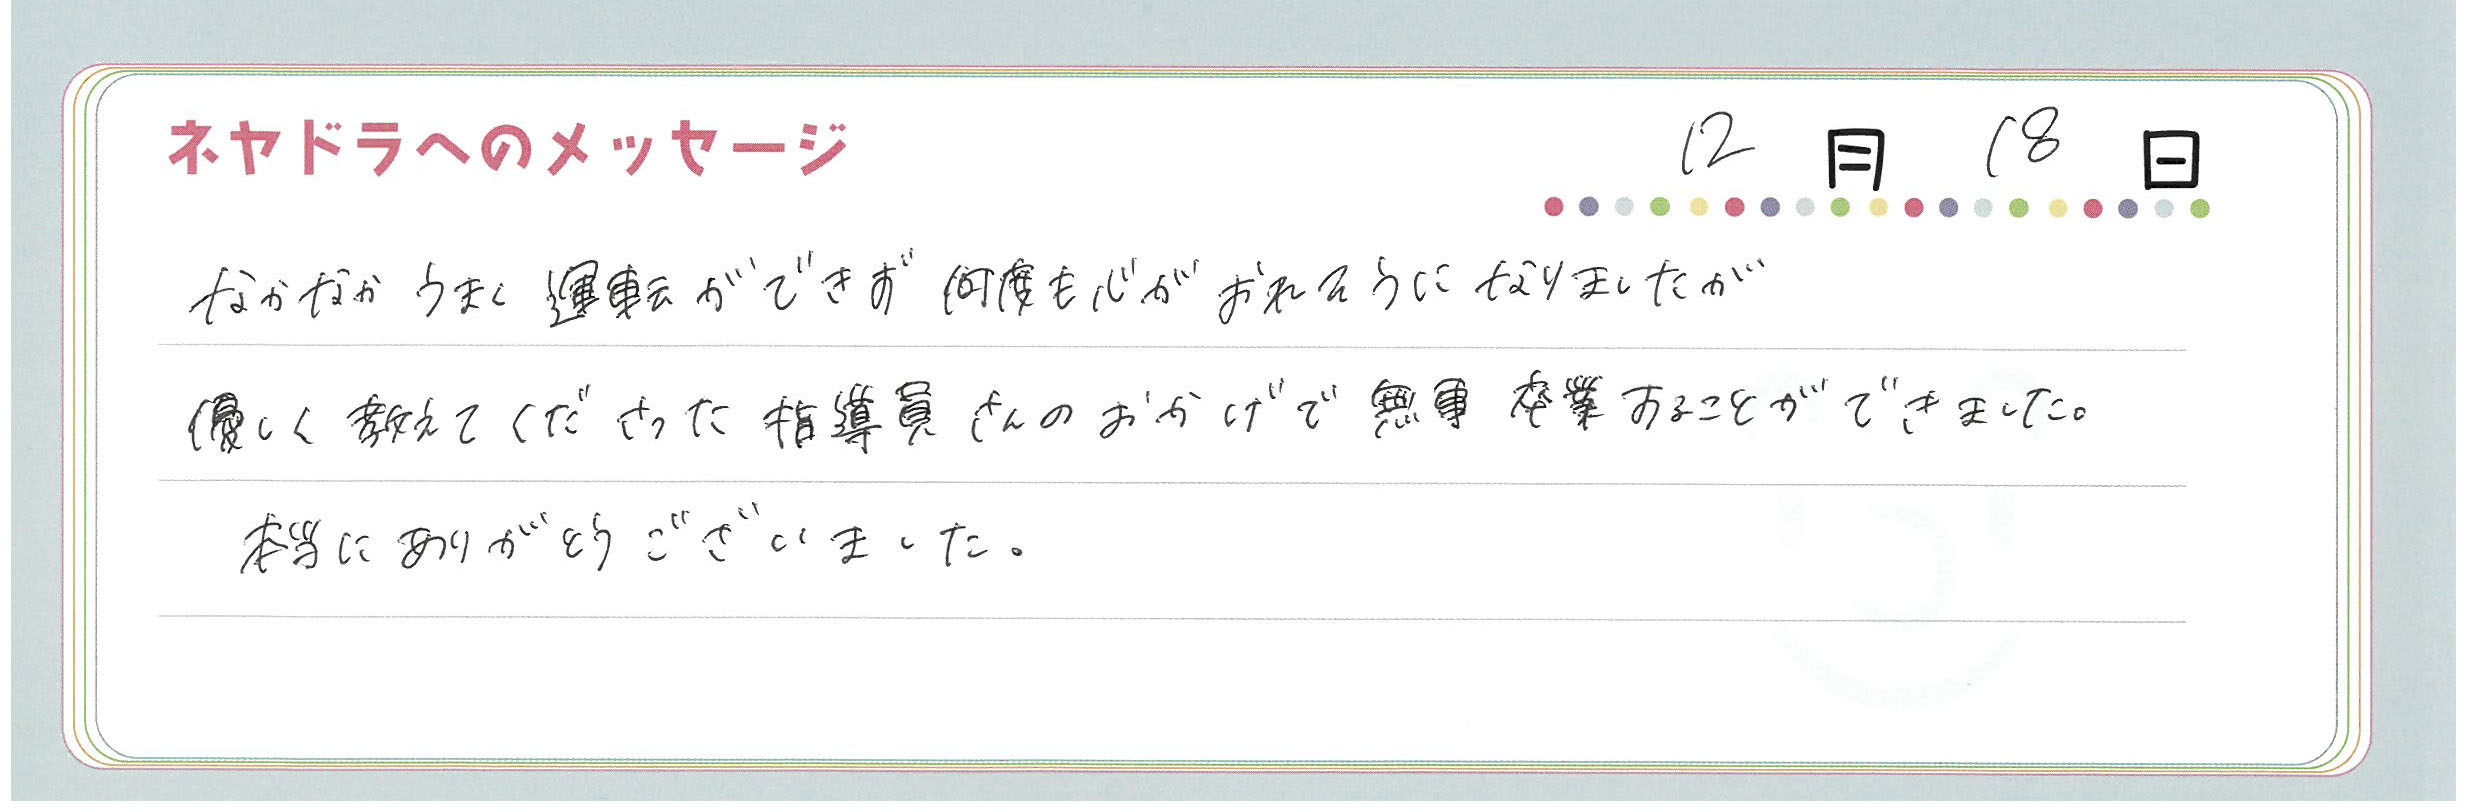 ネヤドラへのメッセージ
12月18日
なかなかうまく運転ができず何度も心がおれそうになりましたが
優しく教えてくださった指導員さんのおかげで無事卒業することができました。
本当にありがとうございました。